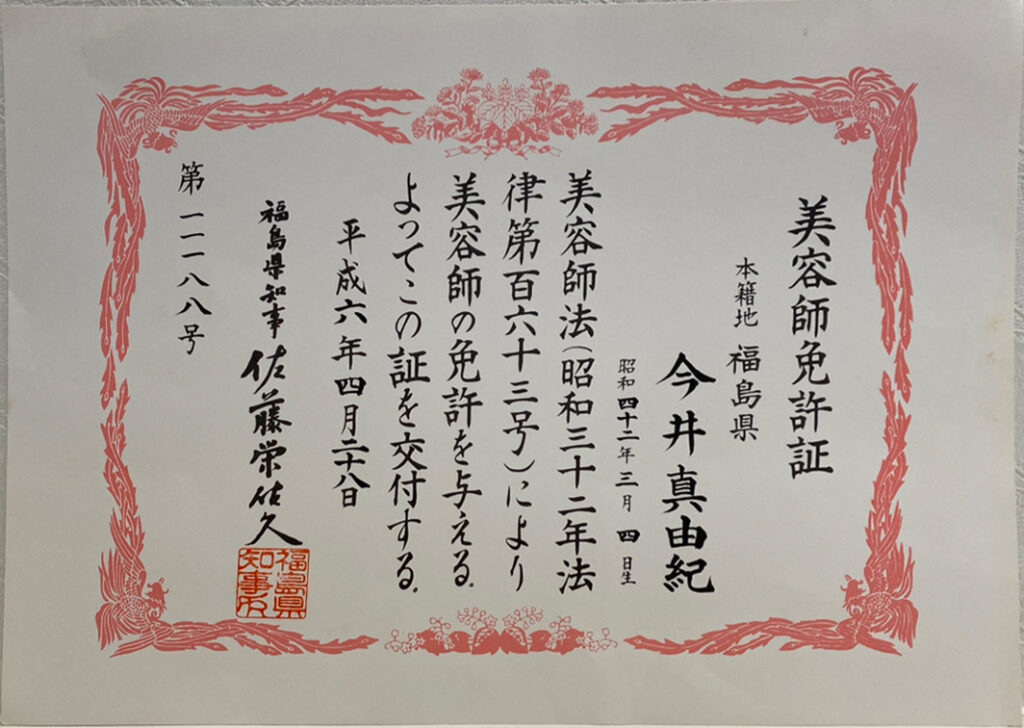 美容師免許証
本籍地 福島県
今井真由紀
昭和四十二年三月四日生
美容師法(昭和三十二年法
律第百六十三号)により
美容師の免許を与える.
よってこの証を交付する.
平成六年四月二十八日
福島県知事 佐藤栄佐久
福島県
知事之印
第一一一八八号